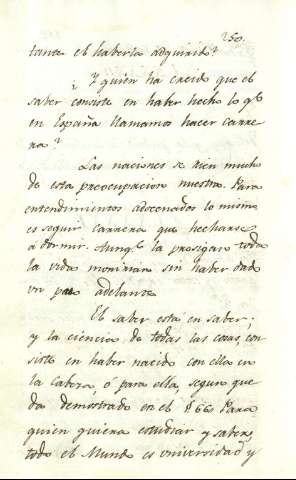 250.
tante el haberla adquirido?
¿Y quien ha creido que el
saber consiste en haber hecho lo q.e
en España llamamos hacer carre
ra?
Las naciones se rien mucho
de esta preocupacion nuestra. Para
entendimientos adocenados lo mismo
es seguir carrera que hecharse
á dormir. Aunq.e la prosigan toda
la vida moriran sin haber dado
un paso adelante.
El saber está en saber;
y la ciencia de todas las cosas con
siste en haber nacido con ella en
la cabeza, ó para ella, segun que
da demostrado en el § 66. Para
quien quiera estudiar y saber,
todo el Mundo es universidad, y